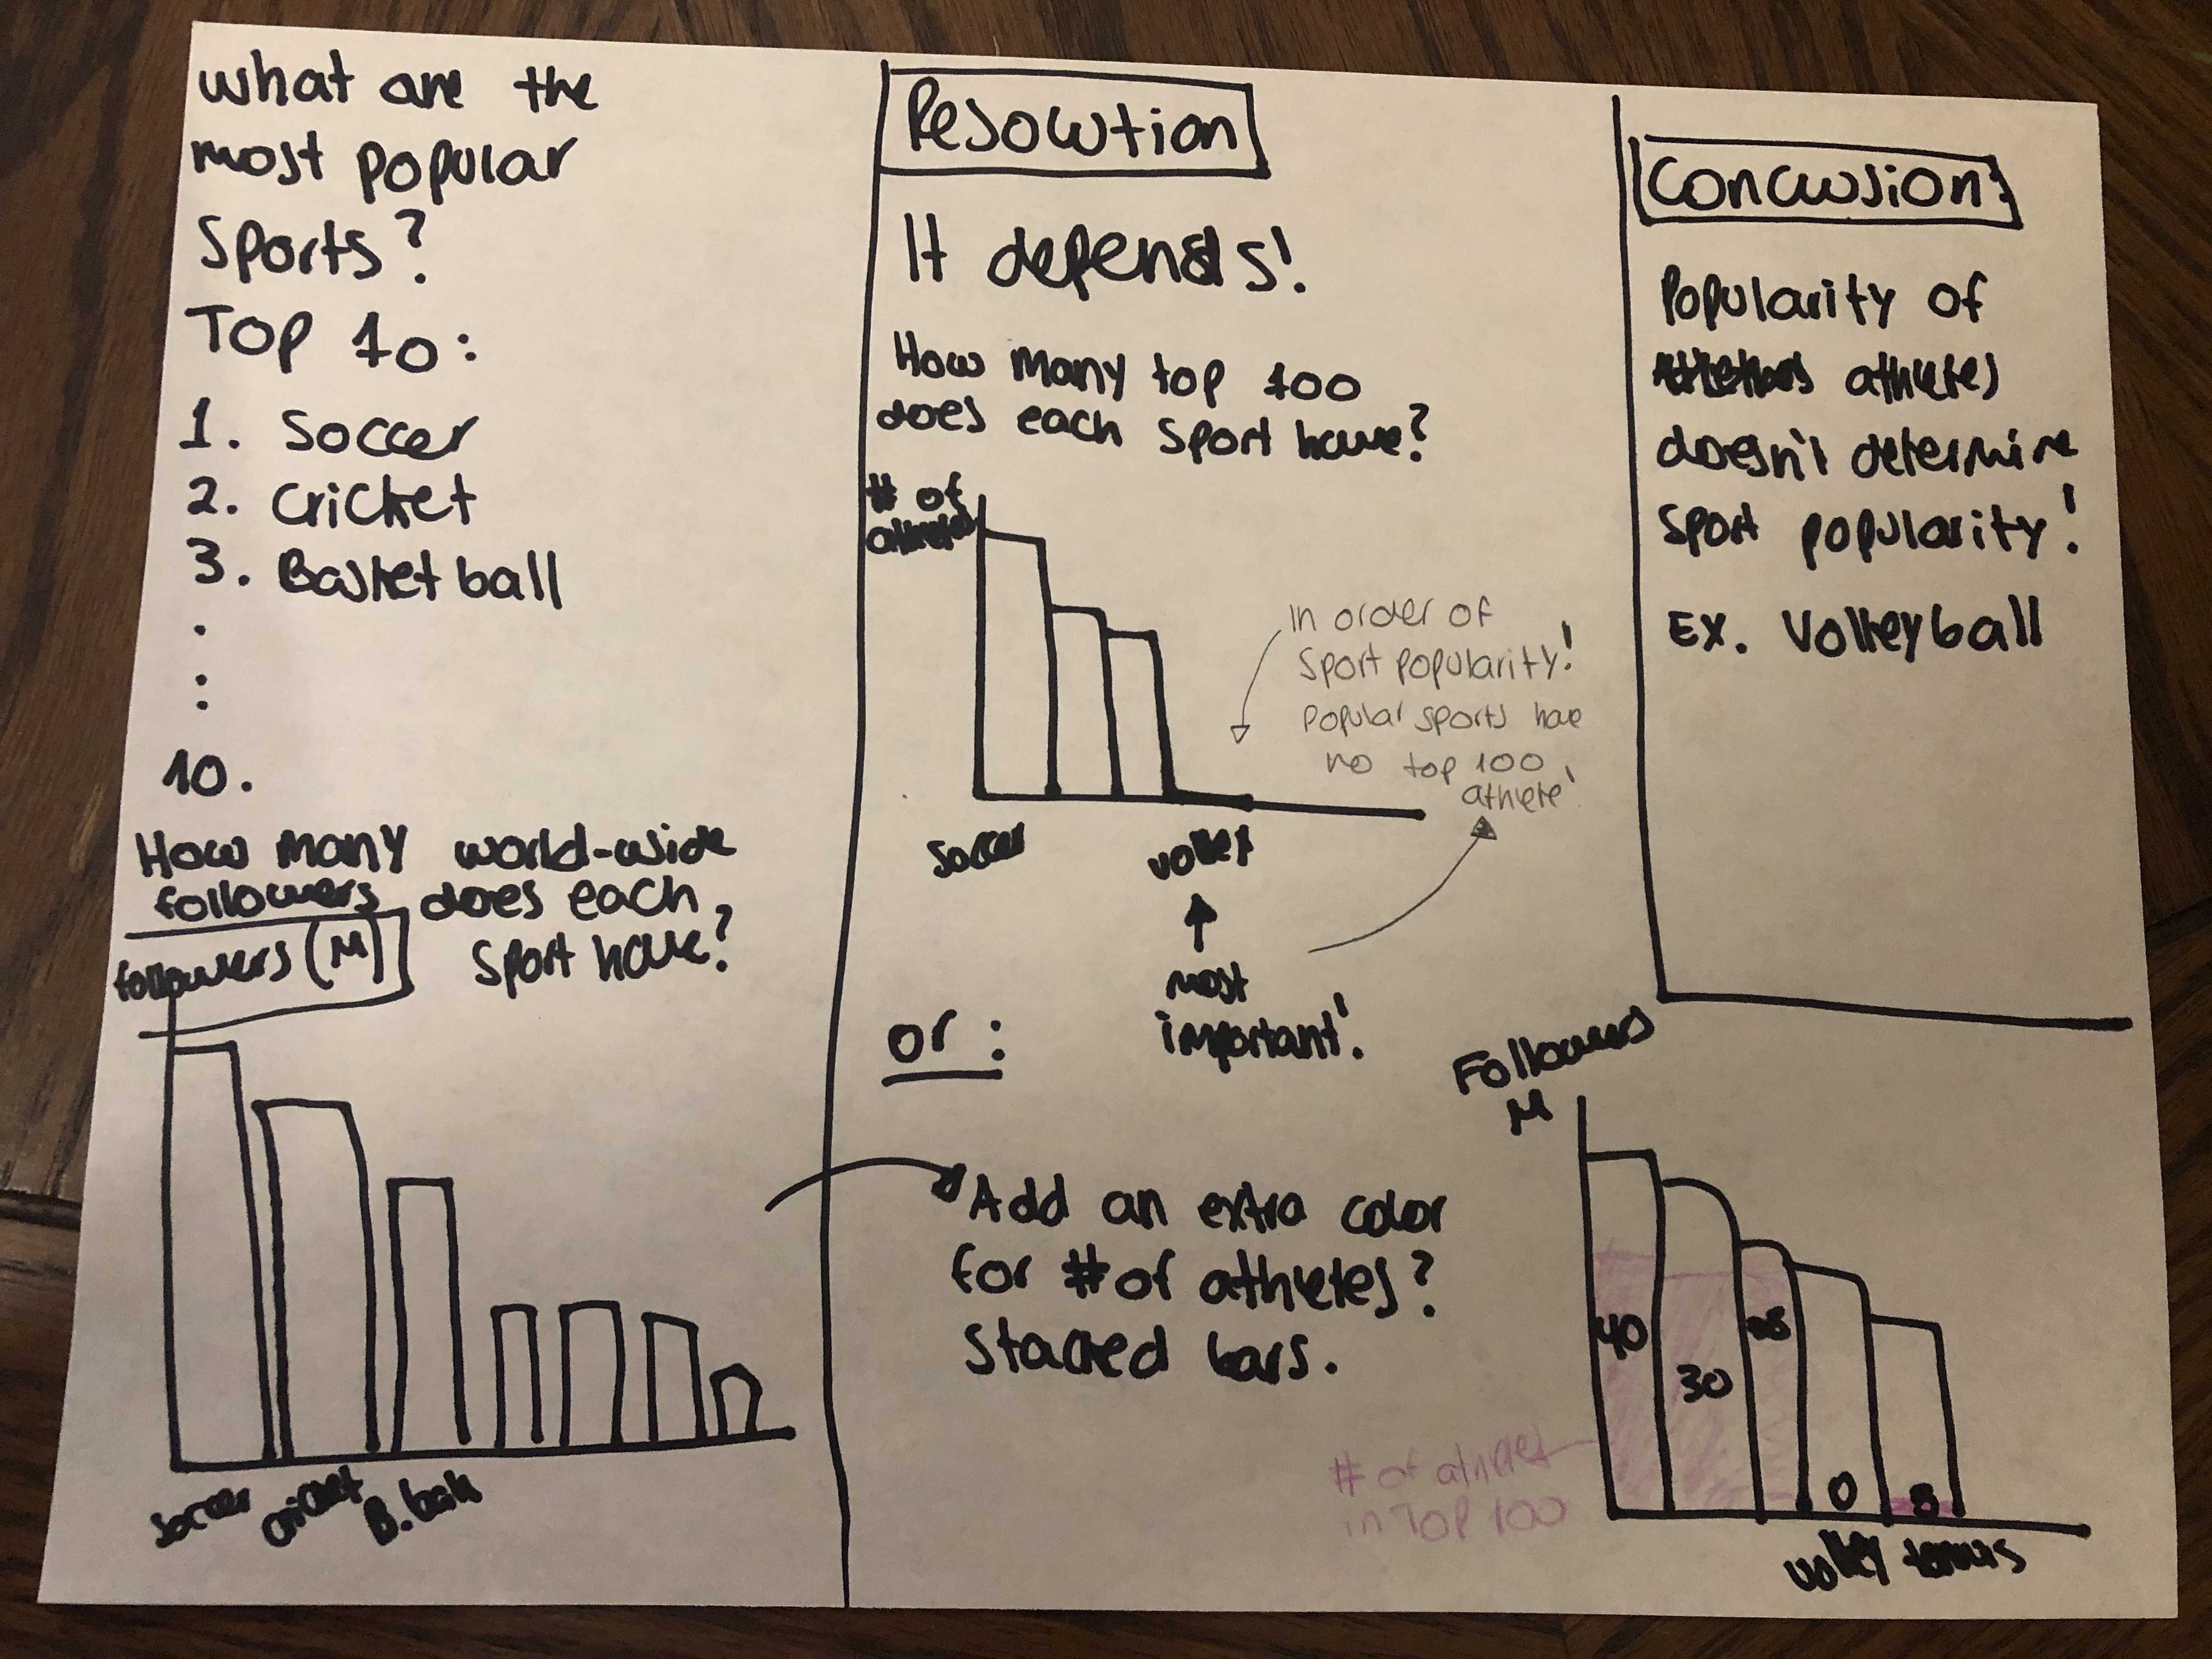 What are the
most popular
Sports?
Top 10:
1. Soccer
2. Cricket
3. Basketball
.
:
10.
How many world-wide
followers does each
sport have?
followers (M)
Soccer Cricket B. ball
Resolution
It depends!
How many top 100
does each sport have?
# of
athletes
In order of
Sport popularity!
Popular sports have
no top 100
athlete!
Soccer volley
most
important!
or:
Add an extra color
for # of athletes?
Stacked bars.
Conclusion:
Popularity of
athletes
doesn't determine
sport popularity!
Ex. Volleyball
Followers
M
40
30
0
8
# of athletes
in Top 100
volley tennis